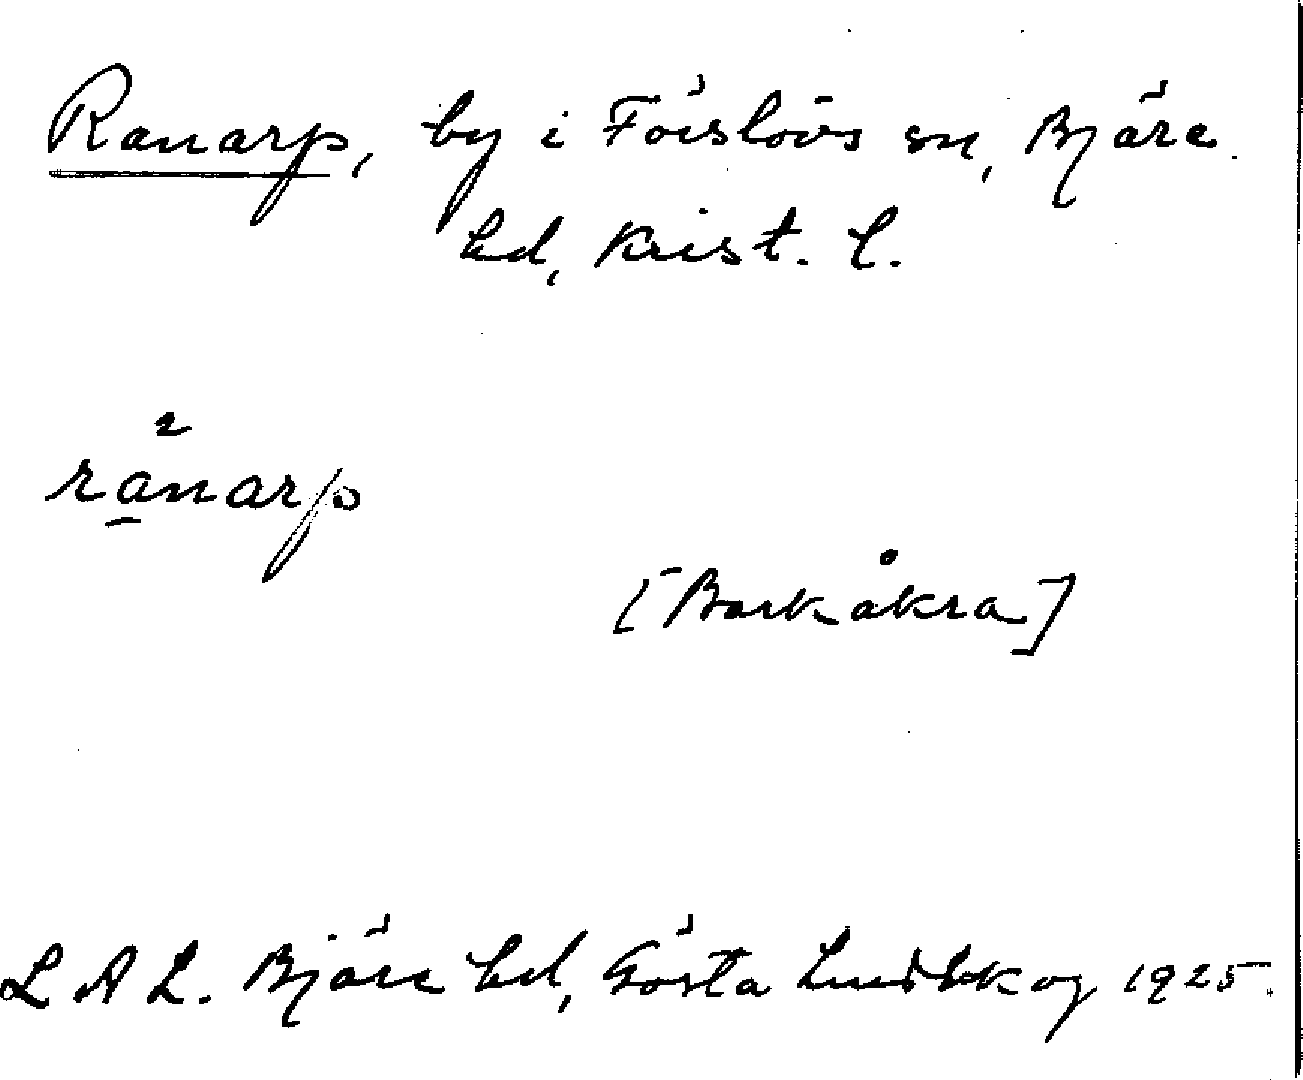 Ranarp, by i Förslövs sn, Bjäre
hd, Krist. l.
ranarp
[Barkåkra]
L A L. Bjäre hd, Gösta Lindskog 1925.